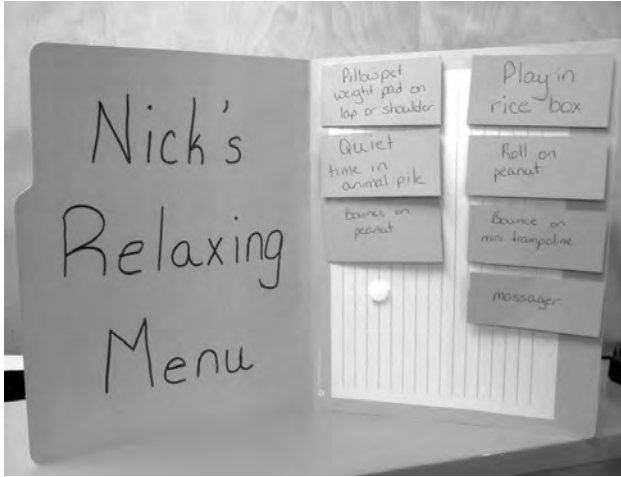 Nick's
Relaxing
Menu
Pillowpet
weight pad on
lap or shoulder
Quiet
time in
animal pile
Bounce on
peanut
Play in
rice box
Roll on
peanut
Bounce on
mini trampoline
massager